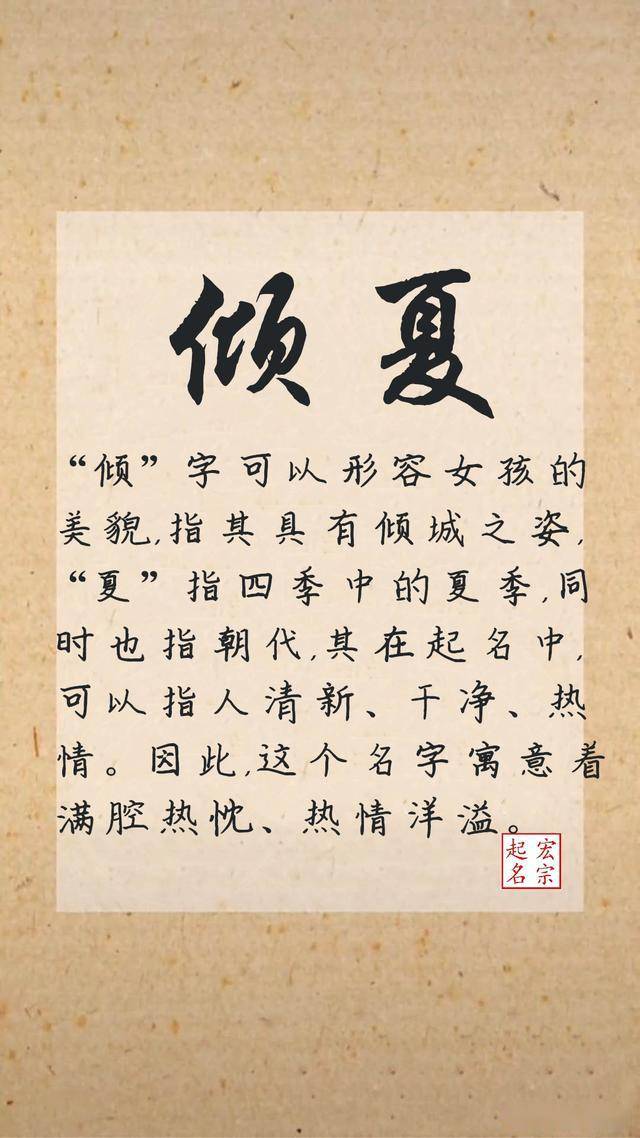 倾夏
“倾”字可以形容女孩的
美貌,指其具有倾城之姿,
“夏”指四季中的夏季,同
时也指朝代,其在起名中,
可以指人清新、干净、热
情。因此,这个名字寓意着
满腔热忱、热情洋溢。
宏宗
起名